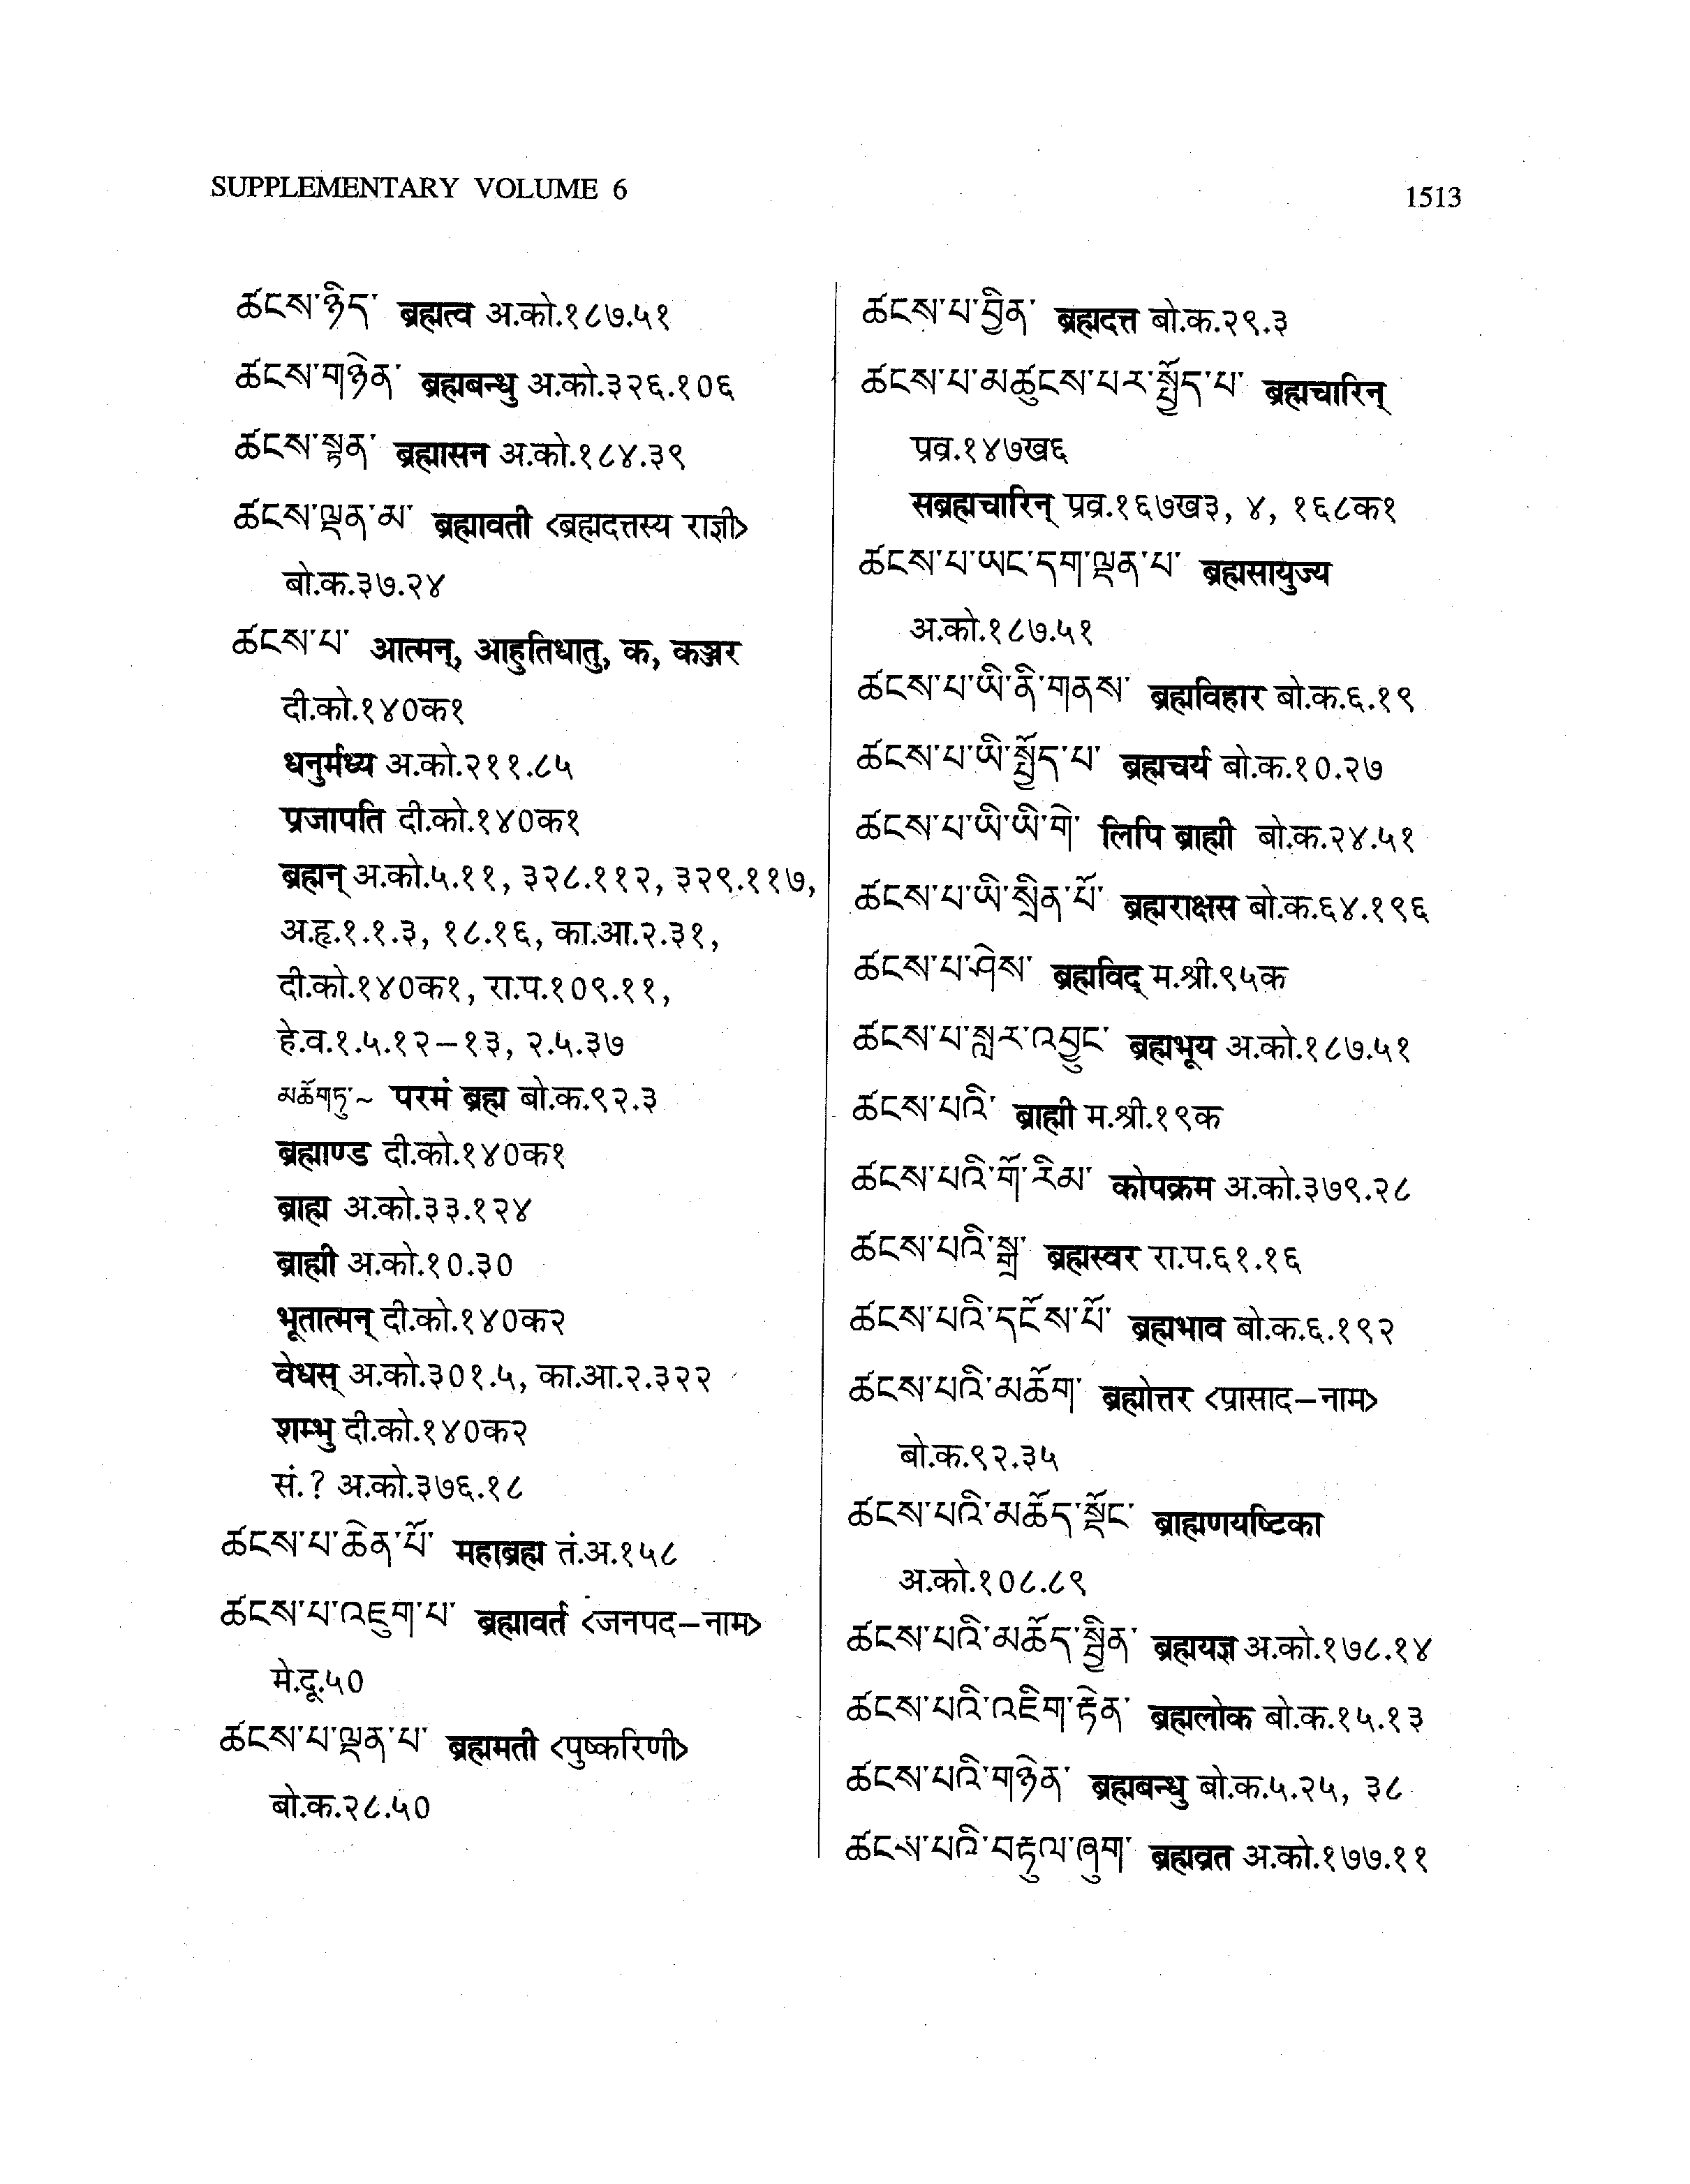 SUPPLEMENTARY VOLUME 6
1513
ཚངས་ཉིད་ ब्रह्मत्व अ.को.१८७.५१
ཚངས་གཉེན་ ब्रह्मबन्धु अ.को.३२६.१०६
ཚངས་སྟན་ ब्रह्मासन अ.को.१८४.३९
ཚངས་ལྡན་མ་ ब्रह्मावती <ब्रह्मदत्तस्य राज्ञी>
बो.क.३७.२४
ཚངས་པ་ आत्मन्, आहुतिधातु, क, कञ्जर
दी.को.१४०क१
धनुर्मध्य अ.को.२११.८५
प्रजापति दी.को.१४०क१
ब्रह्मन् अ.को.५.११, ३२८.११२, ३२९.११७,
अ.हृ.१.१.३, १८.१६, का.आ.२.३१,
दी.को.१४०क१, रा.प.१०९.११,
हे.व.१.५.१२–१३, २.५.३७
མཆོག་ཏུ་~ परमं ब्रह्म बो.क.९२.३
ब्रह्माण्ड दी.को.१४०क१
ब्राह्म अ.को.३३.१२४
ब्राह्मी अ.को.१०.३०
भूतात्मन् दी.को.१४०क२
वेधस् अ.को.३०१.५, का.आ.२.३२२
शम्भु दी.को.१४०क२
सं.? अ.को.३७६.१८
ཚངས་པ་ཆེན་པོ་ महाब्रह्म तं.अ.१५८
ཚངས་པ་འཇུག་པ་ ब्रह्मावर्त <जनपद–नाम>
मे.दू.५०
ཚངས་པ་ལྡན་པ་ ब्रह्ममती <पुष्करिणी>
बो.क.२८.५०
ཚངས་པ་བྱིན་ ब्रह्मदत्त बो.क.२९.३
ཚངས་པ་མཚུངས་པར་སྤྱོད་པ་ ब्रह्मचारिन्
प्रव्र.१४७ख६
सब्रह्मचारिन् प्रव्र.१६७ख३, ४, १६८क१
ཚངས་པ་ཡང་དག་ལྡན་པ་ ब्रह्मसायुज्य
अ.को.१८७.५१
ཚངས་པ་ཡི་ནི་གནས་ ब्रह्मविहार बो.क.६.१९
ཚངས་པ་ཡི་སྤྱོད་པ་ ब्रह्मचर्य बो.क.१०.२७
ཚངས་པ་ཡི་ཡི་གེ་ लिपि ब्राह्मी बो.क.२४.५१
ཚངས་པ་ཡི་སྲིན་པོ་ ब्रह्मराक्षस बो.क.६४.१९६
ཚངས་པ་ཤེས་ ब्रह्मविद् म.श्री.९५क
ཚངས་པ་སླར་འབྱུང་ ब्रह्मभूय अ.को.१८७.५१
ཚངས་པའི་ ब्राह्मी म.श्री.१९क
ཚངས་པའི་གོ་རིམ་ कोपक्रम अ.को.३७९.२८
ཚངས་པའི་སྒྲ་ ब्रह्मस्वर रा.प.६१.१६
ཚངས་པའི་དངོས་པོ་ ब्रह्मभाव बो.क.६.१९२
ཚངས་པའི་མཆོག་ ब्रह्मोत्तर <प्रासाद–नाम>
बो.क.९२.३५
ཚངས་པའི་མཆོད་སྡོང་ ब्राह्मणयष्टिका
अ.को.१०८.८९
ཚངས་པའི་མཆོད་སྦྱིན་ ब्रह्मयज्ञ अ.को.१७८.१४
ཚངས་པའི་འཇིག་རྟེན་ ब्रह्मलोक बो.क.१५.१३
ཚངས་པའི་གཉེན་ ब्रह्मबन्धु बो.क.५.२५, ३८
ཚངས་པའི་བརྟུལ་ཞུག་ ब्रह्मव्रत अ.को.१७७.११